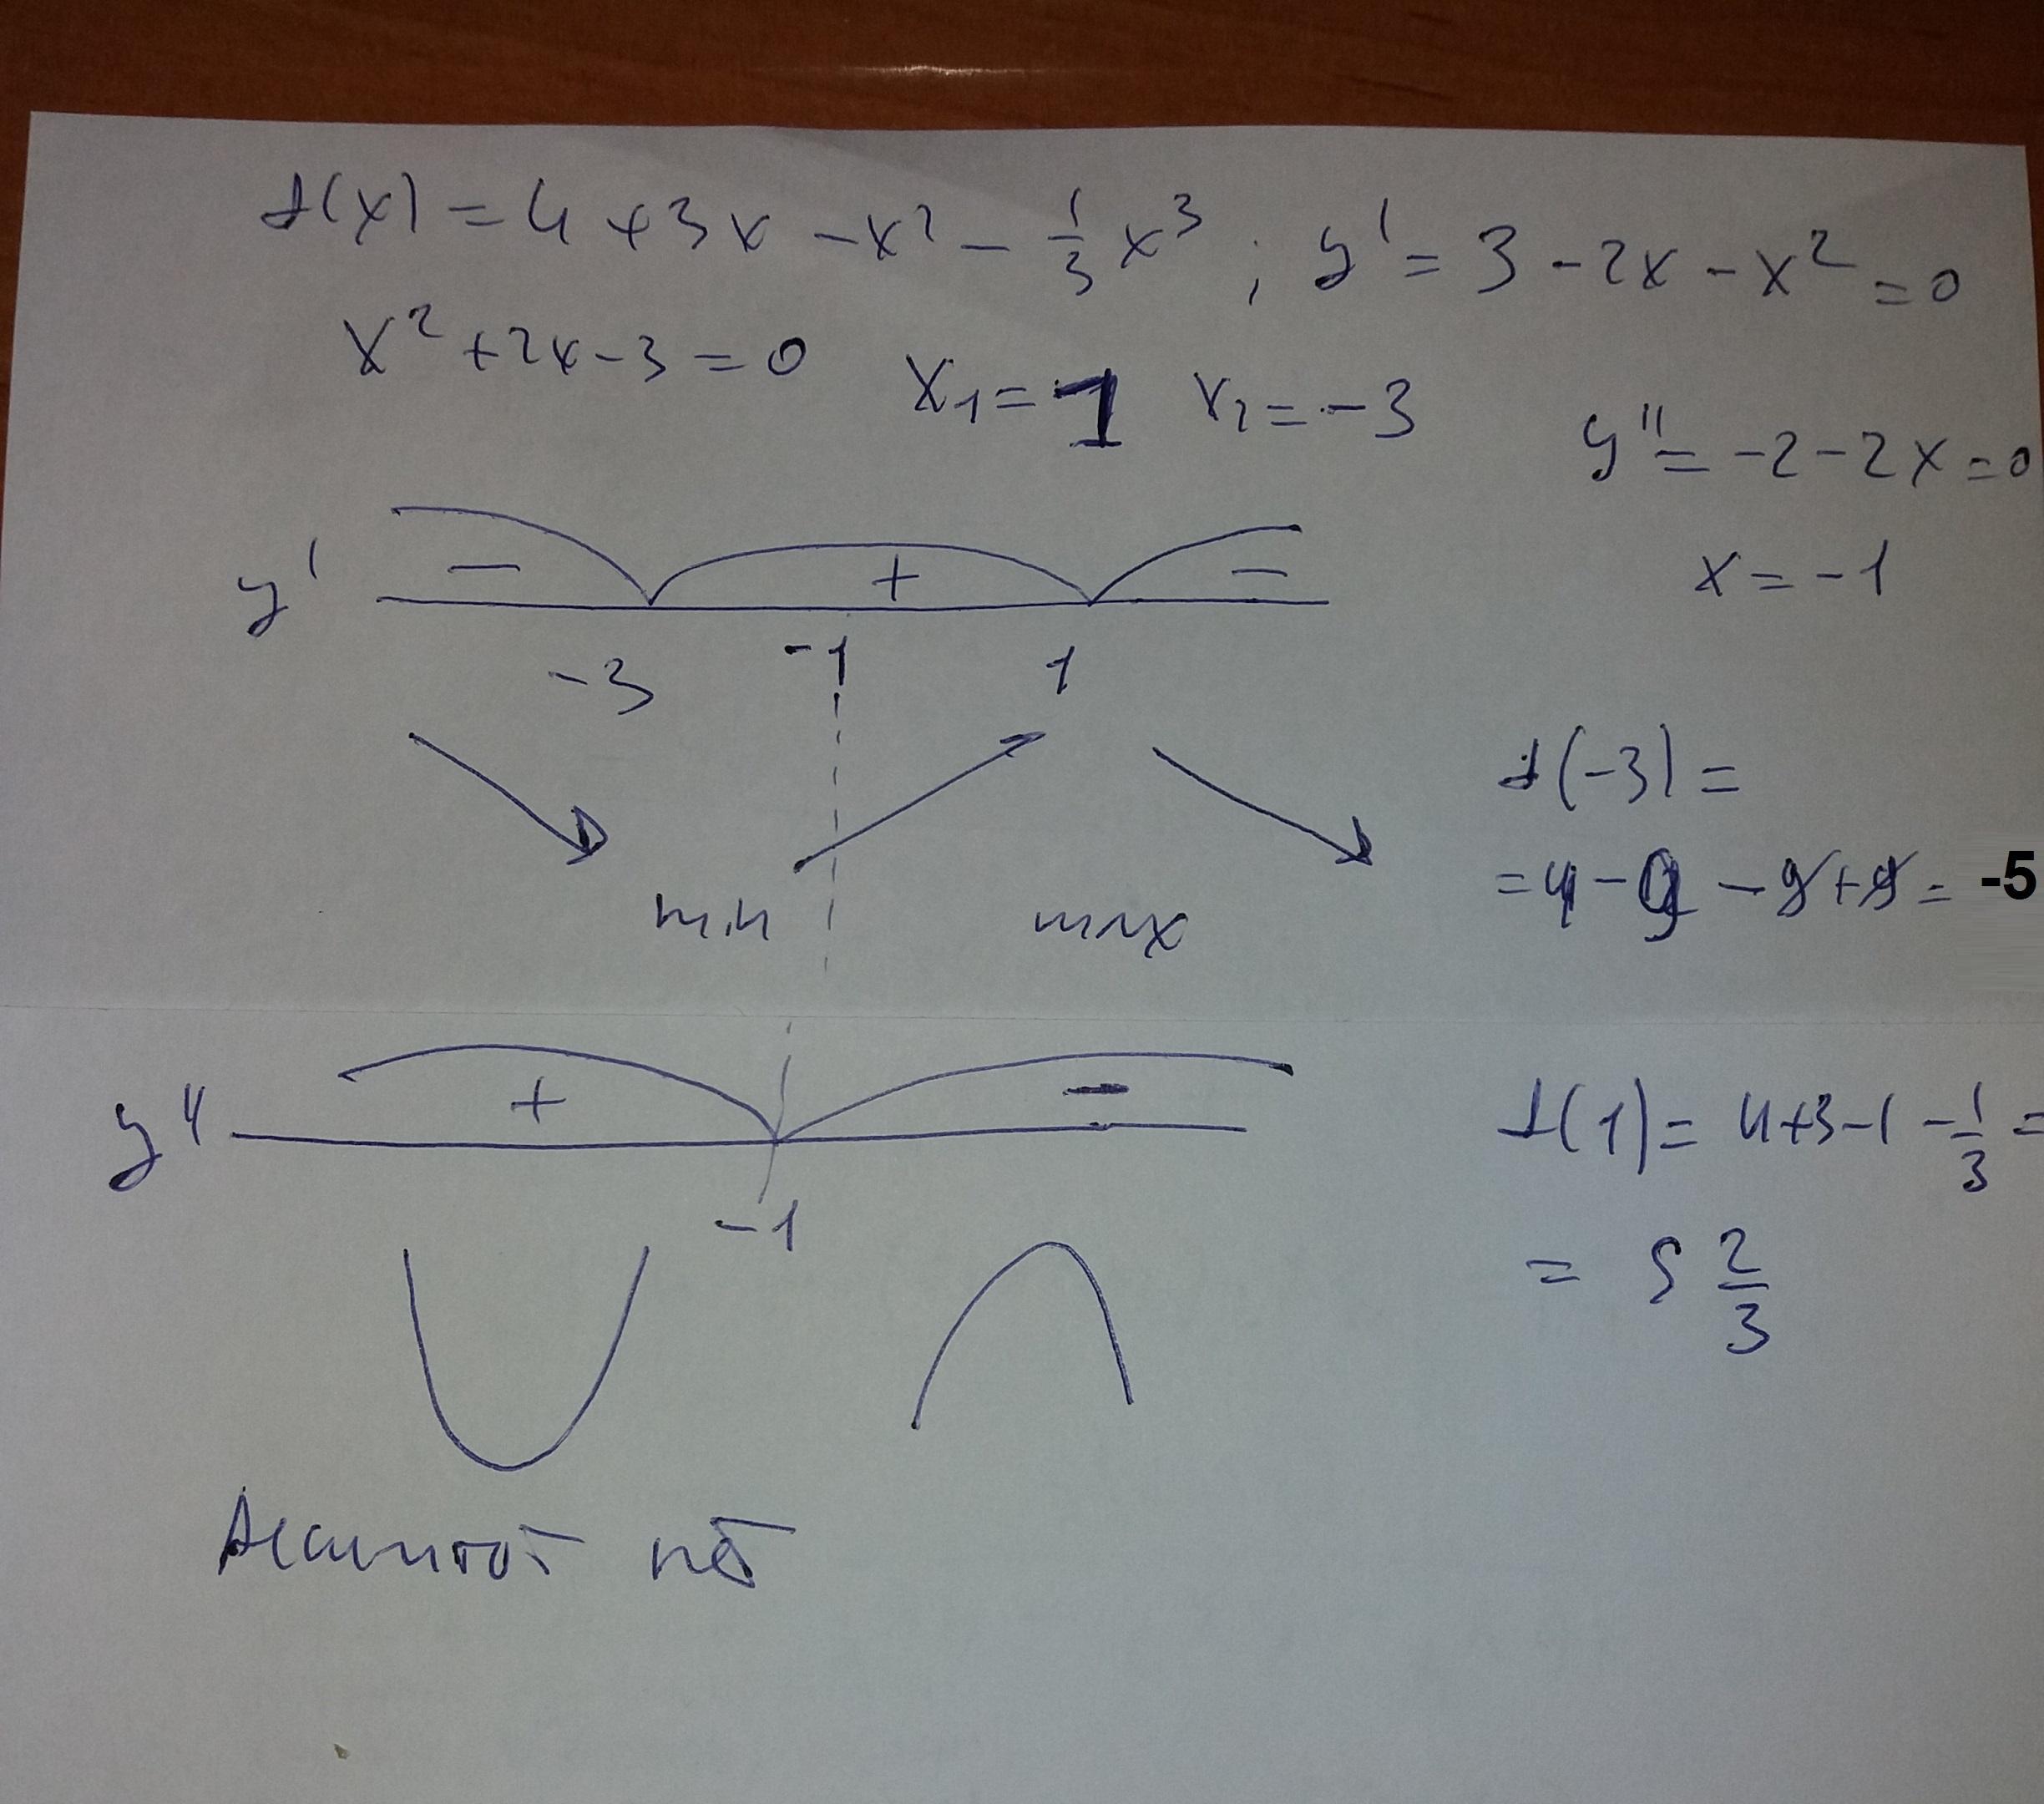 f(x) = 4 + 3x - x² - 1/3 x³ ; y' = 3 - 2x - x² = 0
x² + 2x - 3 = 0 x₁ = 1 x₂ = -3
y'' = -2 - 2x = 0
x = -1
y' - + -
-3 -1 1
f(-3) =
= 4 - 9 - 9 + 9 = -5
min max
y'' + -
-1
f(1) = 4+3-1-1/3 =
= 5 2/3
Асимптот нет